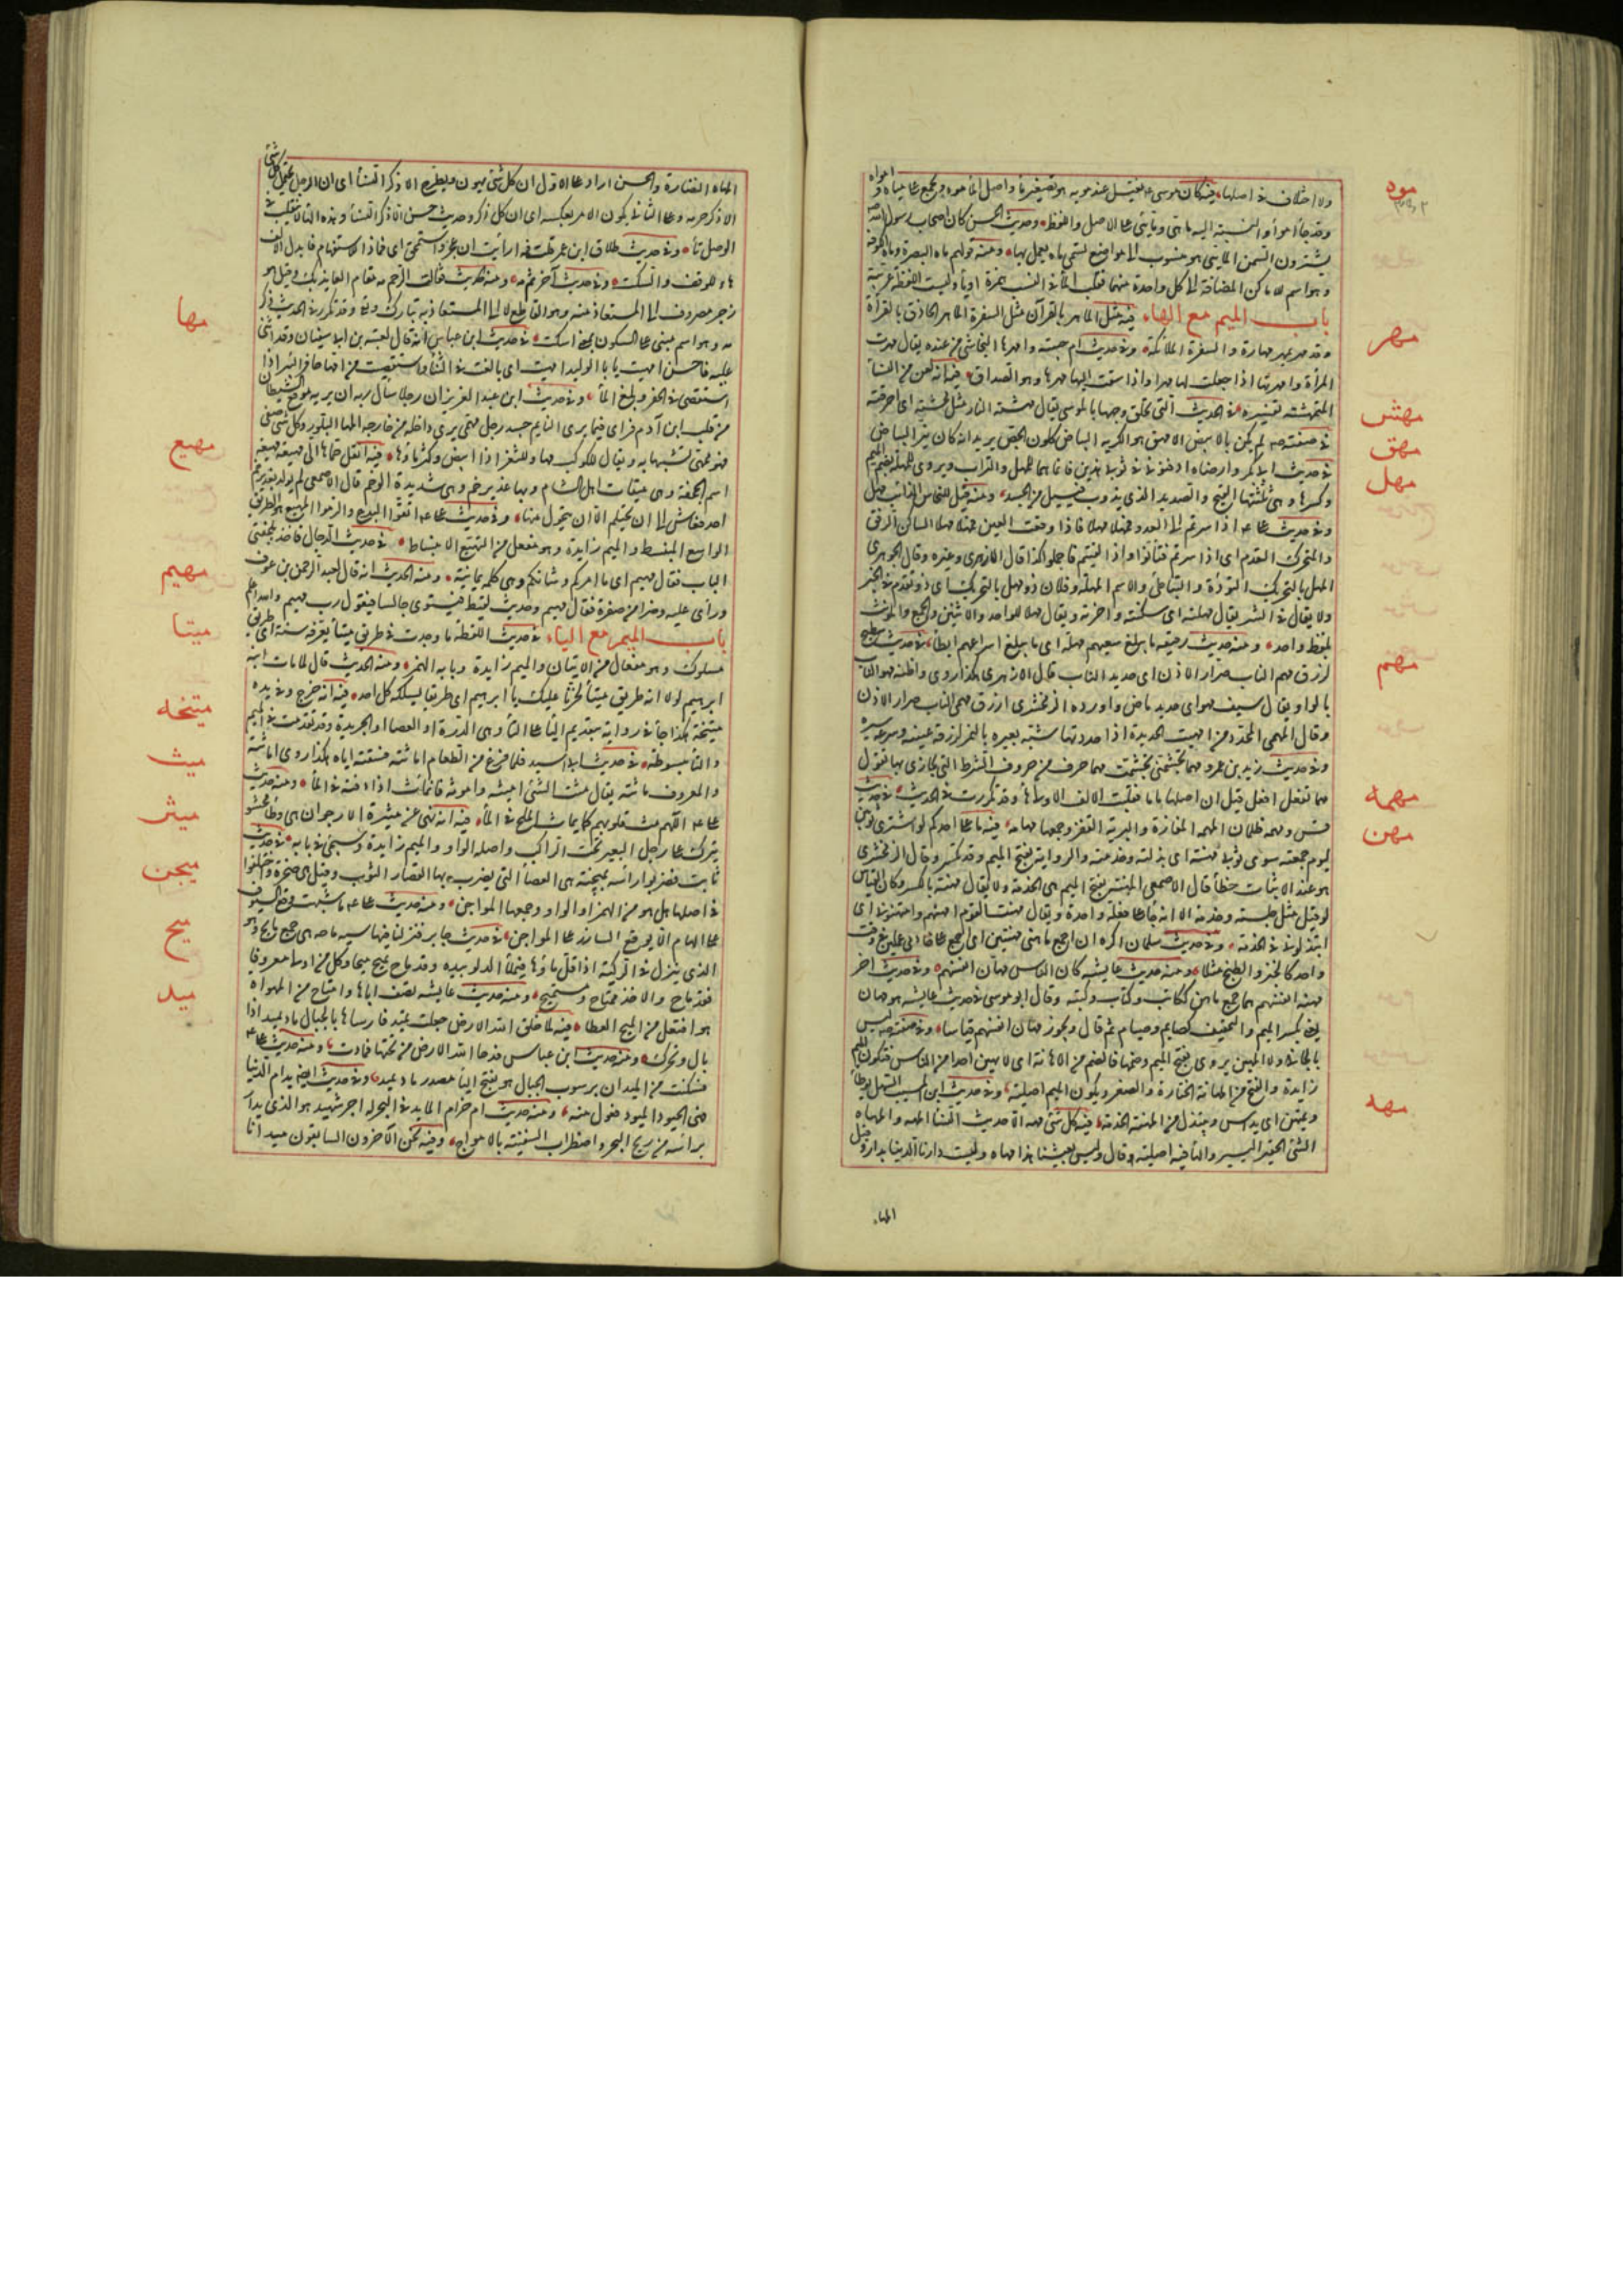 موه
ولا اختلاف في اصلها فيه كان موسى عم يغتسل عند مويه هو تصغير ماء واصل الماء موه ويجمع على مياه وامواه
وقد جاء امواء والنسبة اليه ماهي ومائي على الاصل واللفظ وحديث الحسن كان اصحاب رسول الله صم
يشترون السمن المائي هو منسوب الى مواضع تسمى ماه يعمل بها ومنه قولهم ماه البصرة وماه الكوفة
وهو اسم للاماكن المضافة الى كل واحدة منهما فقلب الهاء في النسب همزة او ياء وليست اللفظة عربية
مهر
باب الميم مع الهاء فيه مثل الماهر بالقرآن مثل السفرة الماهر الحاذق بالقراءة
وقد مهر يمهر مهارة والسفرة الملائكة وفي حديث ام حبيبة وامهرها النجاشي من عنده يقال مهرت
المرأة وامهرتها اذا جعلت لها مهرا واذا سقت اليها مهرها وهو الصداق فيه انه لعن من النساء
مهش
الممتهشة تفسيره في الحديث التي تحلق وجهها بالموسى يقال مهشته النار مثل محشته اى احرقته
مهق
في صفته صم لم يكن بالابيض الامهق هو الكريه البياض كلون الجص يريد انه كان نير البياض
مهل
في حديث ابى بكر وارضاه ادفنوني في ثوبي هذين فانما هما للمهل والتراب ويروى للمهلة بضم الميم
وكسرها وهي ثلثتها القيح والصديد الذى يذوب فيسيل من الجسد ومنه قيل للنحاس الذائب مهل
وفي حديث على عم اذا سرتم الى العدو فمهلا مهلا فاذا وقعت العين فمهلا مهلا الساكن الرفق
والمتحرك التقدم اى اذا سرتم فتأنوا واذا لقيتم فاحملوا كذا قال الازهرى وغيره وقال الجوهرى
المهل بالتحريك التؤدة والتباطؤ والاسم المهلة وفلان ذو مهل بالتحريك اى ذو تقدم في الخير
ولا يقال في الشر يقال مهلته اى سكنته واخرته ويقال مهلا للواحد والاثنين والجمع والمؤنث
مهم
بلفظ واحد ومنه حديث رقيقة ما يبلغ سعيهم مهله اى ما يبلغ اسراعهم ابطاءه في حديث سطيح
ازرق مهم الناب صرار الاذن اى حديد الناب قال الازهرى هكذا روى واظنه مهو الناب
بالواو يقال سيف مهو اى حديد ماض واورده الزمخشرى ازرق ممهى الناب صرار الاذن
وقال الممهى المحدد من امهيت الحديدة اذا حددتها شبه بعيره بالنمر لزرقة عينيه وسرعة سيره
وفي حديث زيد بن عمرو مهما تجشمني تجشمت مهما حرف من حروف الشرط التي يجازى بها تقول
مهمه
مهما تفعل افعل قيل ان اصلها ماما فقلبت الالف الاولى هاء وقد تكررت في الحديث في حديث
مهن
قس ومهمه ظلمان المهمه المفازة والبرية القفر وجمعها مهامه فيه ما على احدكم لو اشترى ثوبين
ليوم جمعته سوى ثوبى مهنته اى بذلته وخدمته والرواية بفتح الميم وقد تكسر وقال الزمخشرى
هو عند الاثبات خطأ قال الاصمعي المهنة بفتح الميم هى الخدمة ولا يقال مهنة بالكسر وكان القياس
لو قيل مثل جلسة وخدمة الا انه جاء على فعلة واحدة ويقال مهنت القوم امهنهم وامتهنوني اى
ابتذلوني في الخدمة وفي حديث سلمان اكره ان اجمع على ماهني مهنتين اى اجمع على خادمي عملين في وقت
واحد كالخبز والطبخ مثلا ومنه حديث عايشه كان الناس مهان انفسهم وفي حديث اخر
مهنة انفسهم هما جمع ماهن ككاتب وكتاب وكتبه وقال ابو موسى في حديث عايشه هو مهان
يعني بكسر الميم والتخفيف كصايم وصيام ثم قال ويجوز مهان انفسهم قياسا وفي صفته صم ليس
بالجافي ولا المهين يروى بفتح الميم وضمها فالضم من الاهانة اى لا يهين احدا من الناس فتكون الميم
زايدة والفتح من المهانة الحقارة والصغر ويكون الميم اصلية وفي حديث ابن المسيب السهل يوطأ
مهه
ويمتهن اى يداس ويبتذل من المهنة الخدمة فيه كل شئ مهه الا حديث النساء المهه والمهاه
الشئ الحقير اليسير والهاء فيه اصلية وقال وليس لعيشنا هذا مهاه وليست دارنا الدنيا بدار وقيل
المهاه
المهاه النضارة والحسن اراد على الاول ان كل شئ يهون ويطرح الا ذكر النساء اى ان الرجل يحتمل كل شئ
الا ذكر حرمه وعلى الثاني يكون الامر بعكسه اى ان كل ذكر وحديث حسن الا ذكر النساء وهذه الهاء لا تنقلب في
الوصل تاء وفي حديث طلاق ابن عمر قلت فمه ارأيت ان عجز واستحمق اى فماذا للاستفهام فابدل الالف
هاء للوقف والسكت وفي حديث آخر ثم مه ومنه الحديث فقالت الرحم مه مقام العايذ بك وقيل هو
زجر مصروف الى المستعاذ منه وهو القاطع لا الى المستعاذ به تبارك وتع وقد تكرر في الحديث ذكر
مها
مه وهو اسم مبني على السكون بمعنى اسكت في حديث ابن عباس انه قال لعتبة بن ابى سفيان وقد اثنى
عليه فاحسن امهيت يا با الوليد امهيت اى بالغت في الثناء واستقصيت من امهى حافر البئر اذا
استقصى في الحفر وبلغ الماء وفي حديث ابن عبد العزيز ان رجلا سأل ربه ان يريه موقع الشيطان
من قلب ابن آدم فراى فيما يرى النايم جسد رجل ممهى يرى داخله من خارجه المها البلور وكل شئ صفى
مهيع
فهو ممهى تشبيها به ويقال للكوكب مها وللثغر اذا ابيض وكثر ماؤه فيه انقل حماها الى مهيعة مهيعة
اسم الجحفة وهى ميقات اهل الشام وبها غدير خم وهى شديدة الوخم قال الاصمعي لم يولد بغدير خم
احد فعاش الى ان يحتلم الا ان يتحول منها وفي حديث على عم اتقوا البدع والزموا المهيع هو الطريق
مهيم
الواسع المنبسط والميم زايدة وهو مفعل من التهيع الانبساط في حديث الدجال فاخذ بلجفتي
الباب فقال مهيم اى ما امركم وشأنكم وهى كلمة يمانية ومنه الحديث انه قال لعبد الرحمن بن عوف
ورأى عليه وضرا من صفرة مهيم وحديث لقيط فيستوى جالسا فيقول رب مهيم
ميتا
باب الميم مع الياء في حديث اللقطة ما وجدت في طريق ميتاء فعرفه سنة اى طريق
مسلوك وهو مفعال من الاتيان والميم زايدة وبابه الهمز ومنه الحديث قال لما مات ابنه
ميتخه
ابرهيم لولا انه طريق ميتاء لحزنا عليك يا ابرهيم اى طريق يسلكه كل احد فيه انه خرج وفي يده
ميتخة هكذا جاء في رواية بتقديم الياء على التاء وهى الدرة او العصا او الجريدة وقد تقدمت في الميم
ميث
والتاء مبسوطة في حديث ابى اسيد فلما فرغ من الطعام اماثته فسقته اياه هكذا روى اماثته
والمعروف ماثته يقال مثت الشئ اميثه واموثه فانماث اذا دفته في الماء ومنه حديث
ميثر
على عم اللهم مث قلوبهم كما يماث الملح في الماء فيه انه نهى عن ميثرة الارجوان هى وطاء محشو
يترك على رحل البعير تحت الراكب واصله الواو والميم زايدة وسيجئ في بابه في حديث
ميجن
ثابت فضربوا رأسه بميجنة هى العصا التي يضرب بها القصار الثوب وقيل هى صخرة واختلفوا
في اصلها هل هو من الهمز او الواو وجمعها المواجن ومنه حديث على عم ما شبهت وقع السيوف
ميح
على الهام الا بوقع البيازر على المواجن في حديث جابر فنزلنا فيها ستة ماحة هى جمع مايح وهو
الذى ينزل في الركية اذا قل ماؤها فيملأ الدلو بيده وقد ماح يميح ميحا وكل من اولى معروفا
فقد ماح والاخذ ممتاح ومستميح ومنه حديث عايشه تصف اباها وامتاح من المهواة
ميد
هو افتعل من الميح العطاء فيه لما خلق الله الارض جعلت تميد فارساها بالجبال ماد يميد اذا
مال وتحرك ومنه حديث ابن عباس فدحا الله الارض من تحتها فمادت ومنه حديث على عم
فسكنت من الميدان برسوب الجبال هو بفتح الياء مصدر ماد يميد وفي حديثه ايضا يذم الدنيا
فهي الحيود الميود فعول منه ومنه حديث ام حرام المايد في البحر له اجر شهيد هو الذى يدار
برأسه من ريح البحر واضطراب السفينة بالامواج وفيه نحن الآخرون السابقون ميد انا